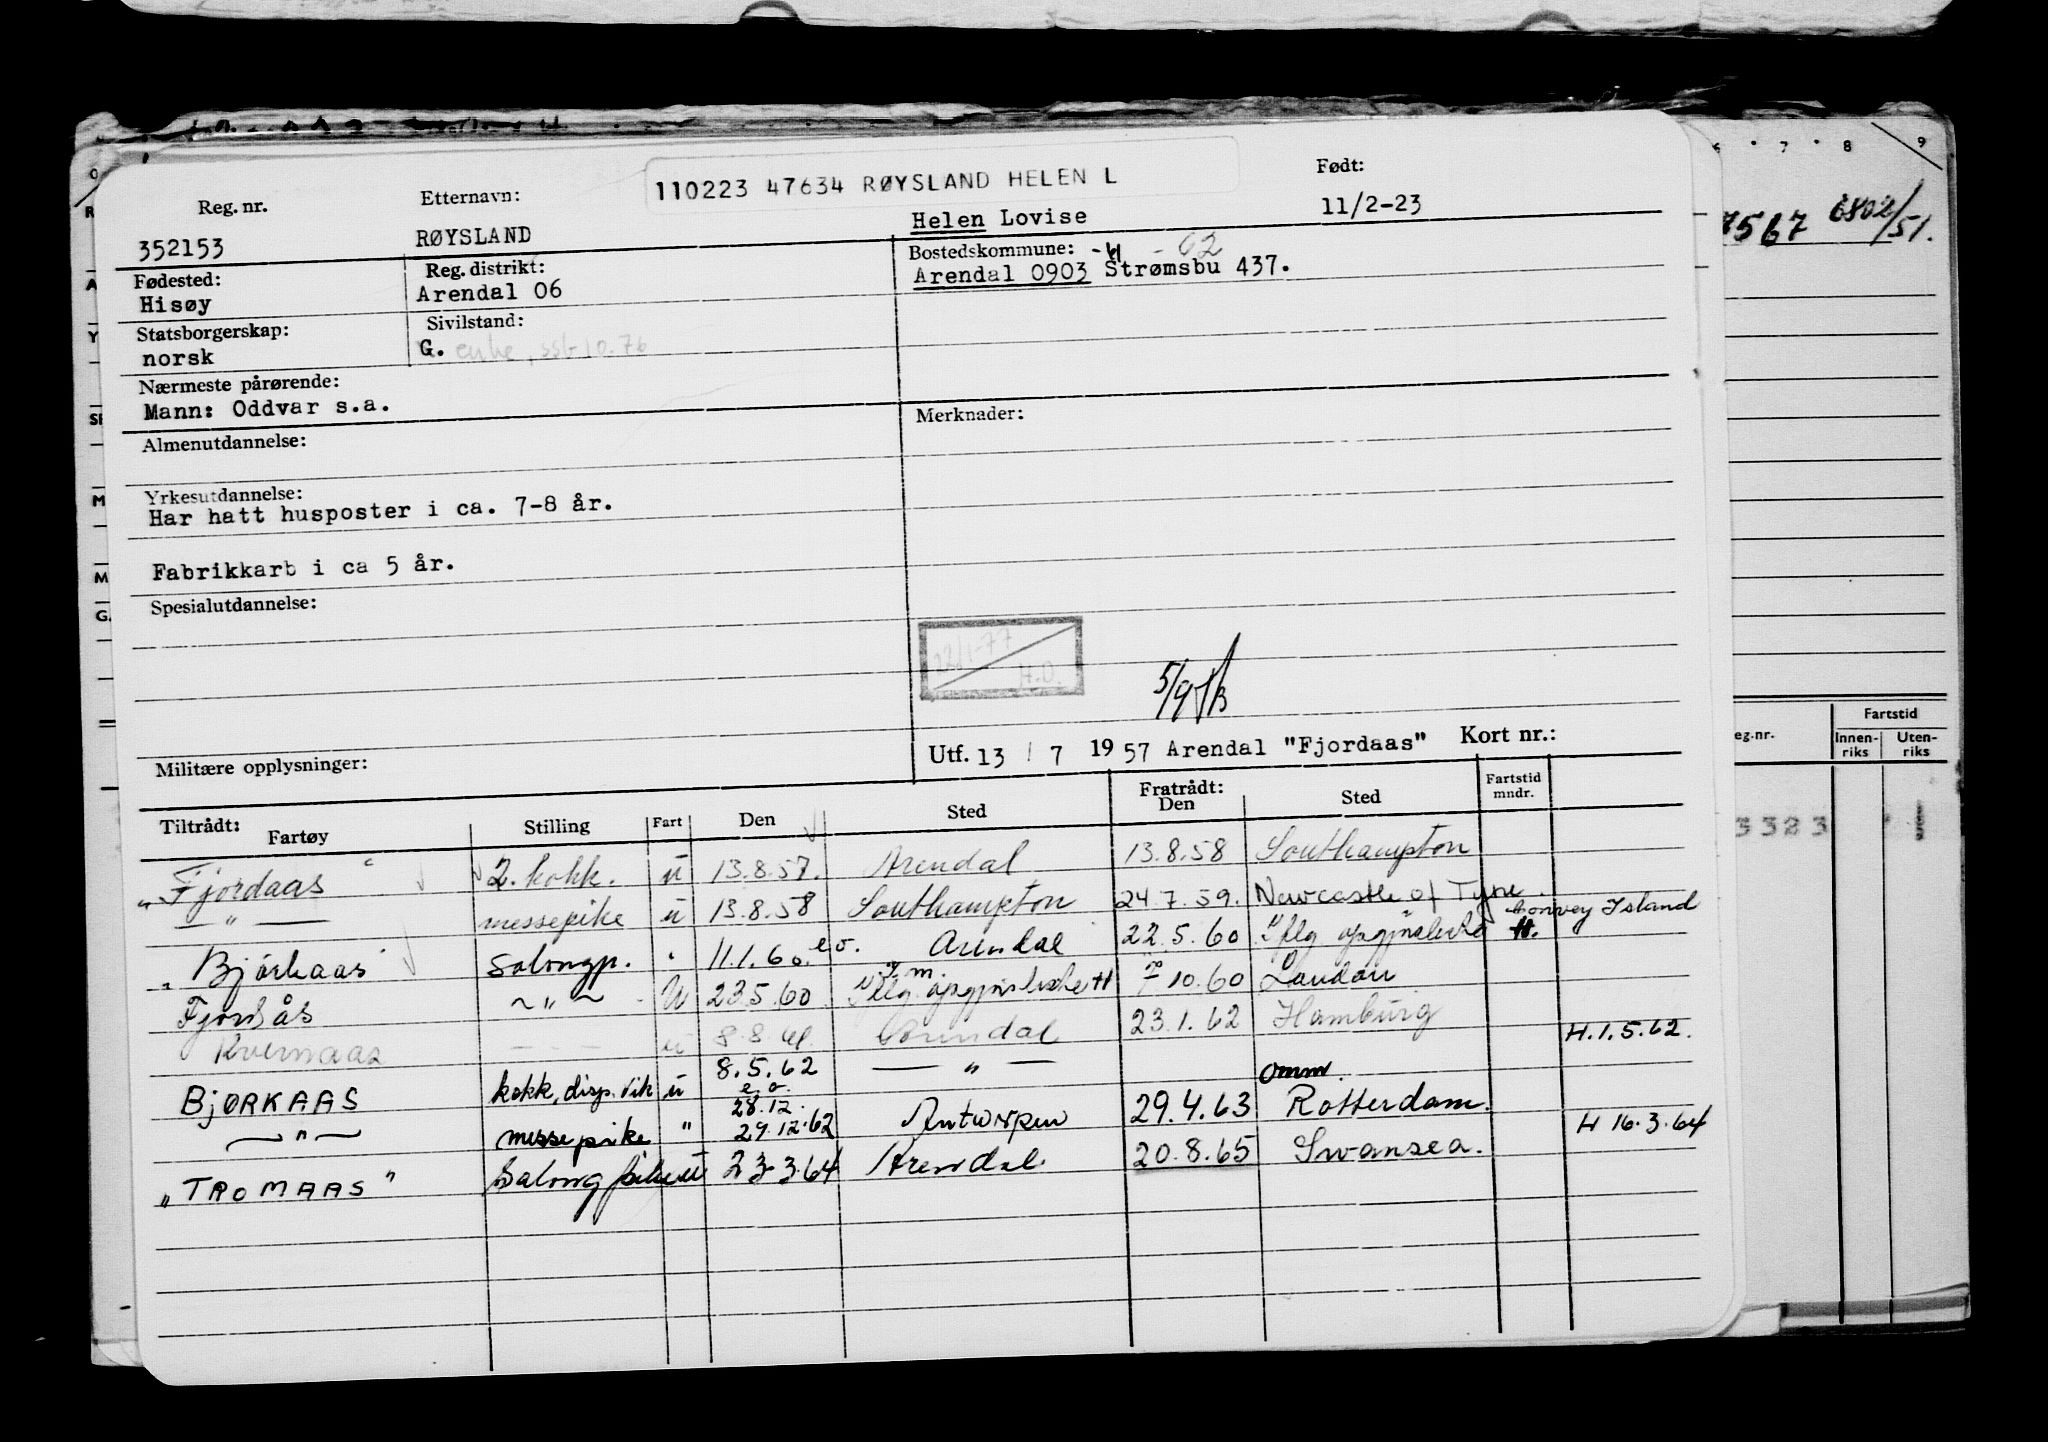 110223 47634 RØYSLAND HELEN L
Reg. nr. Etternavn: Født:
352153 RØYSLAND Helen Lovise 11/2-23
Fødested: Reg. distrikt: Bostedskommune: -62
Hisøy Arendal 06 Arendal 0903 Strømsbu 437.
Statsborgerskap: Sivilstand:
norsk G. enke, ssb 10.76
Nærmeste pårørende:
Mann: Oddvar s.a.
Almenutdannelse: Merknader:
Yrkesutdannelse:
Har hatt husposter i ca. 7-8 år.
Fabrikkarb i ca 5 år.
Spesialutdannelse:
22/1-77
H.O.
5/9
Militære opplysninger: Utf. 13 / 7 1957 Arendal "Fjordaas" Kort nr.:
Tiltrådt: Fartøy Stilling Fart Den Sted Fratrådt: Den Sted Fartstid mndr.
"Fjordaas" 2. kokk. u 13.8.57. Arendal 13.8.58 Southampton
— " — messepike u 13.8.58 Southampton 24.7.59. Newcastle of Tyne.
"Bjørkaas" Salongp. " 11.1.60. e.o. Arendal 22.5.60 Iflg. H. Convey Island
Fjordås ~ " ~ U 23.5.60 Iflg. H 10.60 London
Kvernaas — — — u 8.8.61. Arendal 23.1.62 Hamburg
H.1.5.62.
BJØRKAAS kokk, disp. vik u 8.5.62 — " —
e.o. 28.12. omm.
— " — messepike " 29.12.62 Antwerpen 29.4.63 Rotterdam.
H 16.3.64
"TROMAAS" Salongpike u 23.3.64 Arendal 20.8.65 Swansea.
6 7 8 9
7567 6802/51.
eg.nr. Fartstid
Innen-riks Uten-riks
3323